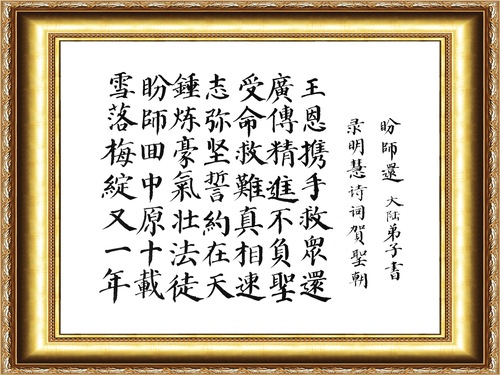 盼師還 大陆弟子書
录明慧诗词賀聖朝
王恩携手救眾還
廣傳精進不負聖
受命救難真相速
志弥坚誓約在天
錘炼豪氣壮法徒
盼師回中原十載
雪落梅綻又一年